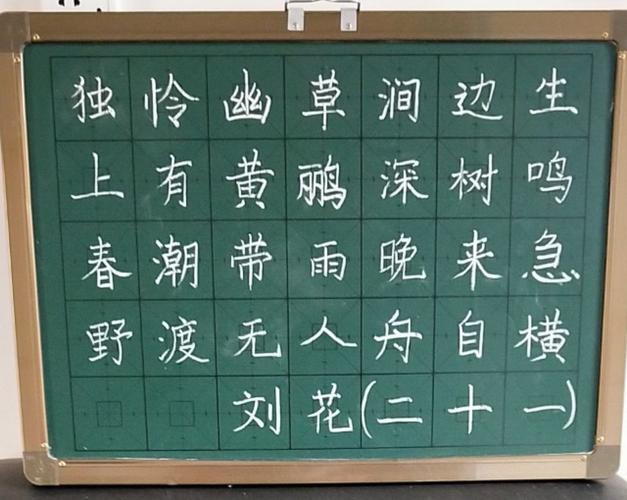 独怜幽草涧边生
上有黄鹂深树鸣
春潮带雨晚来急
野渡无人舟自横
刘花(二十一)